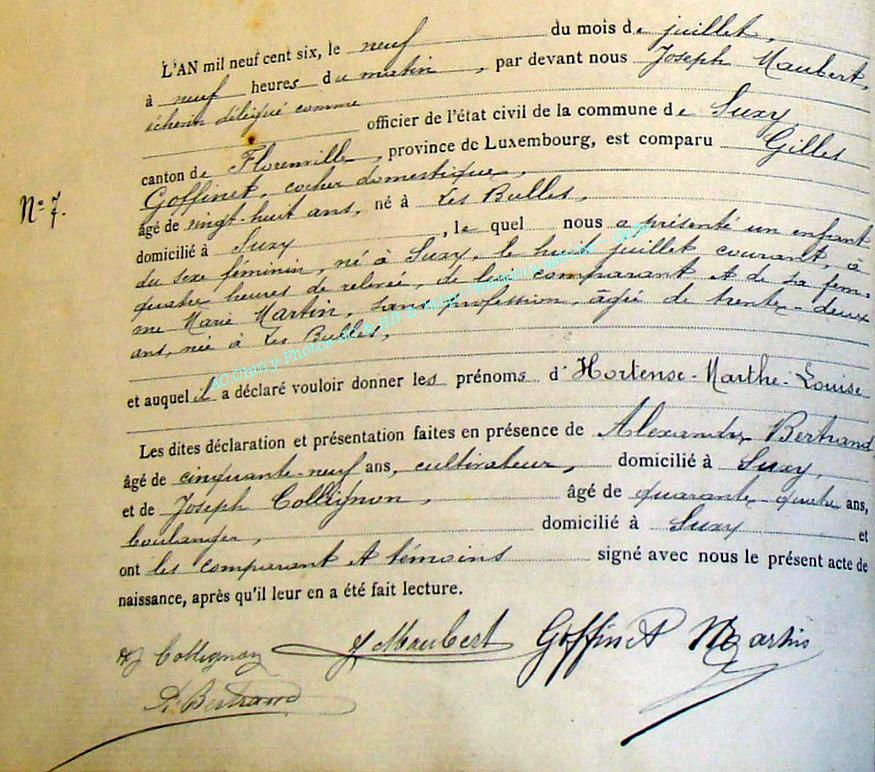 L'AN mil neuf cent six, le neuf du mois de juillet,
à neuf heures du matin, par devant nous Joseph Maubert,
échevin délégué comme
officier de l'état civil de la commune de Suxy,
canton de Florenville, province de Luxembourg, est comparu Gilles
Goffinet, cocher domestique,
N° 7.
âgé de vingt-huit ans, né à Les Bulles,
domicilié à Suxy, le quel nous a présenté un enfant
du sexe féminin, né à Suxy, le huit juillet courant, à
quatre heures de relevée, de lui comparant et de sa fem-
me Marie Martin, sans profession, âgée de trente-deux
ans, née à Les Bulles,
et auquel il a déclaré vouloir donner les prénoms d'Hortense-Marthe-Louise
Les dites déclaration et présentation faites en présence de Alexandre Bertrand
âgé de cinquante-neuf ans, cultivateur, domicilié à Suxy,
et de Joseph Collignon, âgé de quarante quatre ans,
boulanger, domicilié à Suxy et
ont les comparant et témoins signé avec nous le présent acte de
naissance, après qu'il leur en a été fait lecture.
Collignon J Maubert Goffinet Martin
A Bertrand